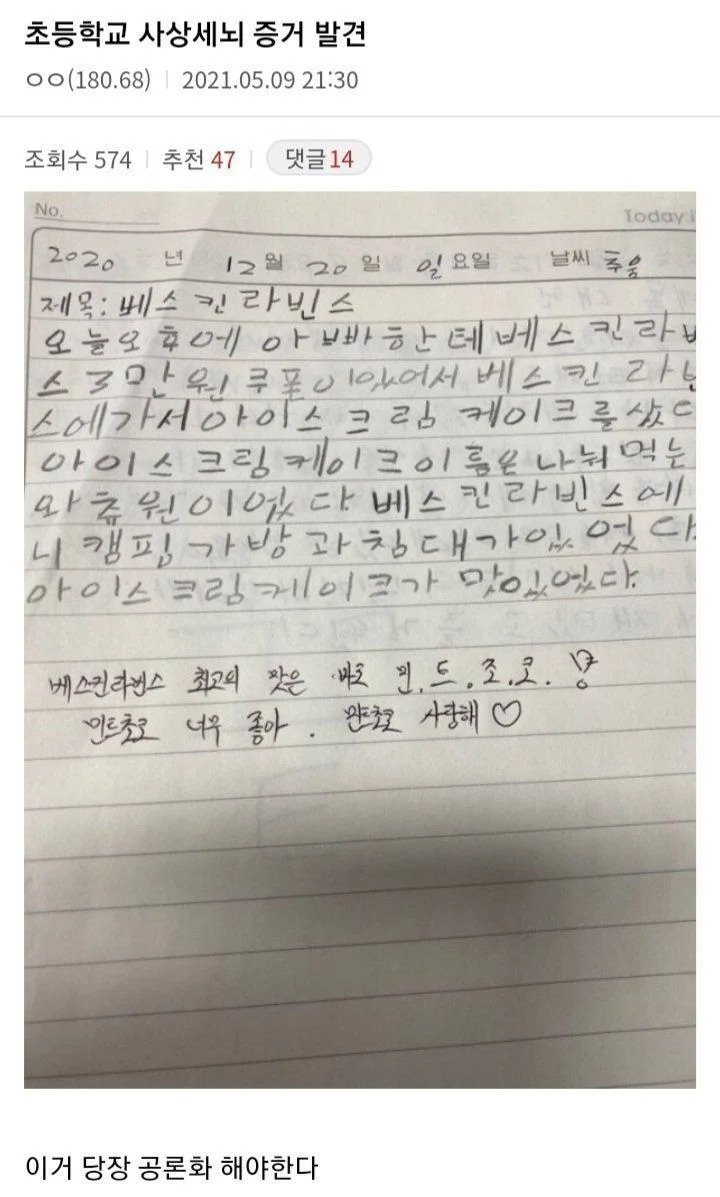 초등학교 사상세뇌 증거 발견
ㅇㅇ(180.68) 2021.05.09 21:30
조회수 574 추천 47 댓글 14
No. Today i
2020 년 12월 20일 일요일 날씨 추움
제목: 베스킨라빈스
오늘오후에 아빠한테베스킨라
스 3만원 쿠폰이있어서 베스킨 라
스에가서아이스크림 케이크를샀다
아이스크림케이크이름은나눠먹는
와츄원이었다 베스킨라빈스에
니캠핑가방과침대가있었다
아이스크림케이크가 맛있었다.
베스킨라빈스 최고의 맛은 바로 민.트.초.코.
민트초코 너무 좋아. 민트초코 사랑해♡
이거 당장 공론화 해야한다